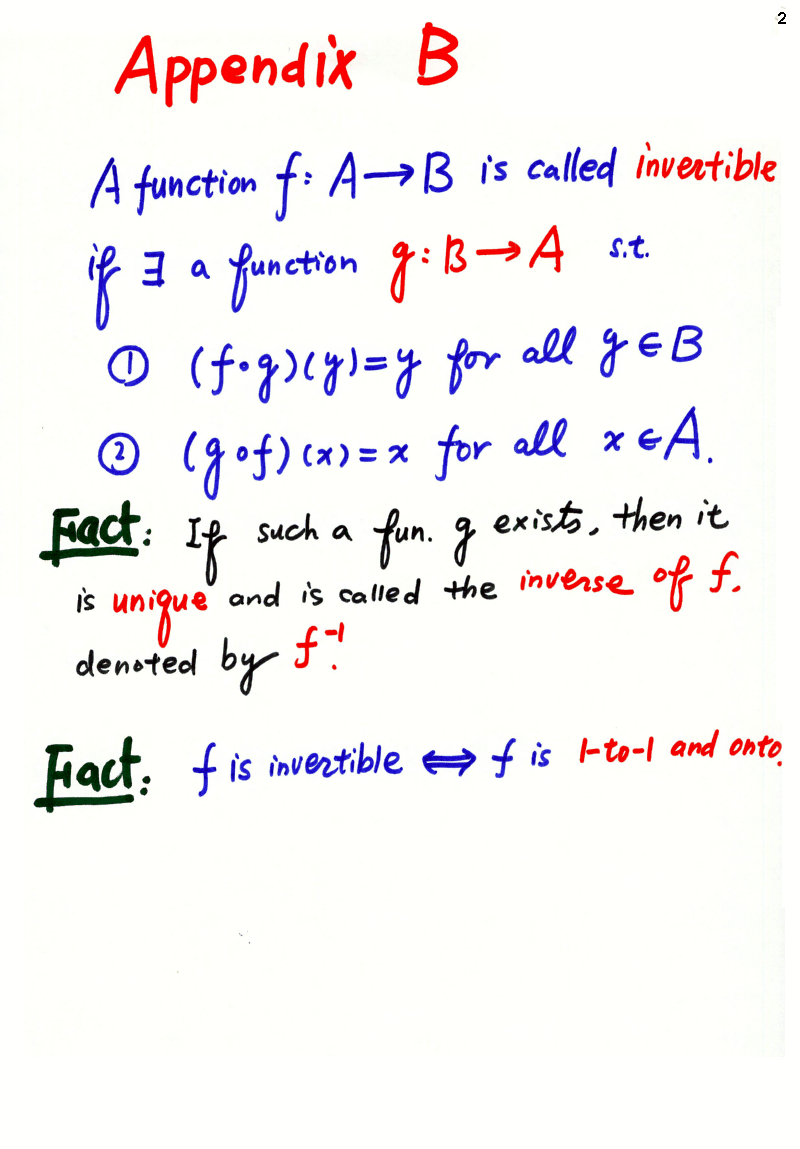 2
Appendix B
A function f: A → B is called invertible
if ∃ a function g: B → A s.t.
① (f∘g)(y) = y for all y ∈ B
② (g∘f)(x) = x for all x ∈ A.
Fact: If such a fun. g exists, then it
is unique and is called the inverse of f.
denoted by f⁻¹.
Fact: f is invertible ⟺ f is 1-to-1 and onto.